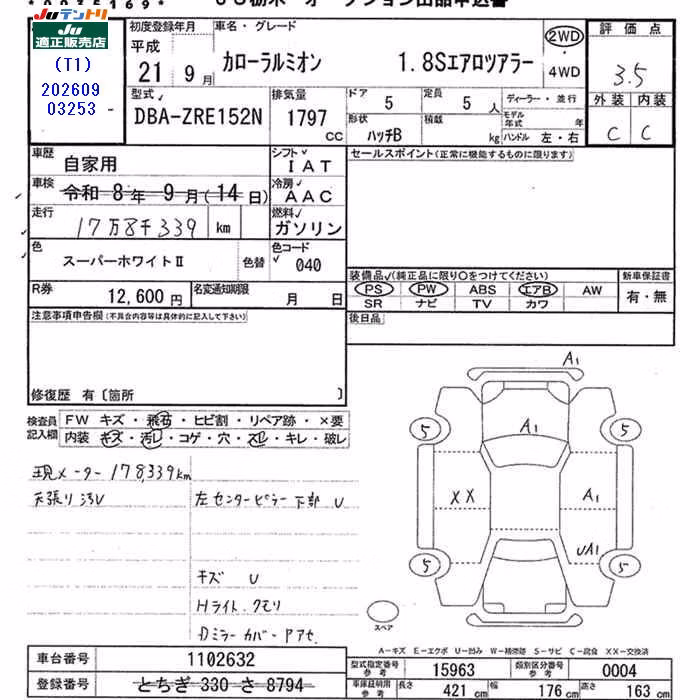 JUテントリ
JU
適正販売店
(T1)
202609
03253
初度登録年月
平成
21 9月
車名・グレード
カローラルミオン 1.8Sエアロツアラー
2WD
4WD
評価点
3.5
外装 内装
C C
型式
DBA-ZRE152N
排気量
1797
CC
ドア 5
定員 5 人
形状
ハッチB
積載
kg
ディーラー・並行
モデル年式 年
ハンドル 左・右
車歴
自家用
シフト
IAT
セールスポイント(正常に機能するものに限ります)
車検
令和 8年 9月(14日)
冷房
AAC
走行
17万8千339 km
燃料
ガソリン
色
スーパーホワイトⅡ
色替
色コード
040
装備品(純正品に限り○をつけてください)
新車保証書
PS PW ABS エアB AW
有・無
SR ナビ TV カワ
R券
12,600円
名変通知期限
月 日
注意事項申告欄(不具合内容等は具体的に記入して下さい)
後日品
修復歴 有〔箇所 〕
検査員記入欄
FW キズ・飛石・ヒビ割・リペア跡・×要
内装 キズ・汚レ・コゲ・穴・スレ・キレ・破レ
現メーター 178,339km
天張り汚レ
左センターピラー下部 U
キズ U
Hライト.クモリ
Dミラーカバー.Pアセ.
A1
A1
5 5
XX A1
UA1
5 5
スペア
A-キズ E-エクボ U-凹み W-補修跡 S-サビ C-腐食 XX-交換済
車台番号
1102632
型式指定番号
参考
15963
類別区分番号
参考
0004
登録番号
とちぎ 330 さ 8794
車庫証明用
参考
長さ 421 cm
幅 176 cm
高さ 163 cm